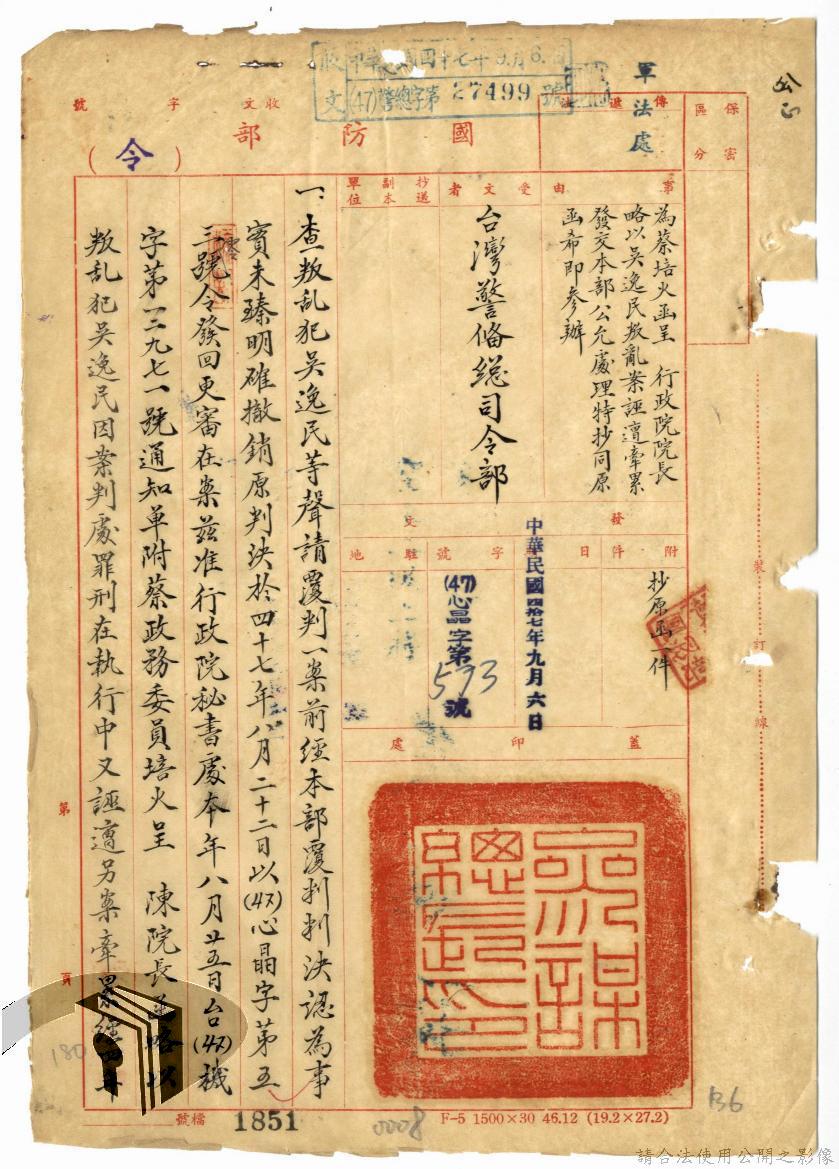 收 中華民國四十七年9月6日
文 (47)警總字第 27499 號
軍法處
收文 字 號
傳遞
保密
區分
國防部
(令)
事由
為蔡培火函呈 行政院院長
略以吳逸民叛亂案誣遭牽累
發交本部公允處理特抄同原
函希即參辦
受文者
台灣警備總司令部
抄送
副本
單位
附件
抄原函一件
發文
日
中華民國四拾七年九月六日
字號
(47)心晶字第
573
號
駐地
蓋印處
一、查叛乱犯吳逸民等聲請覆判一案前經本部覆判判決認為事
實未臻明確撤銷原判決於四十七年八月二十二日以(47)心晶字第五
三號令發回更審在案茲准行政院秘書處本年八月廿五日台(47)機
字第一二九七一號通知單附蔡政務委員培火呈 陳院長函略以
叛乱犯吳逸民因案判處罪刑在執行中又誣遭另案牽累經
裝
訂
線
第
頁
檔號
1851
0008
F-5 1500×30 46.12 (19.2×27.2)
B6
180
請合法使用公開之影像